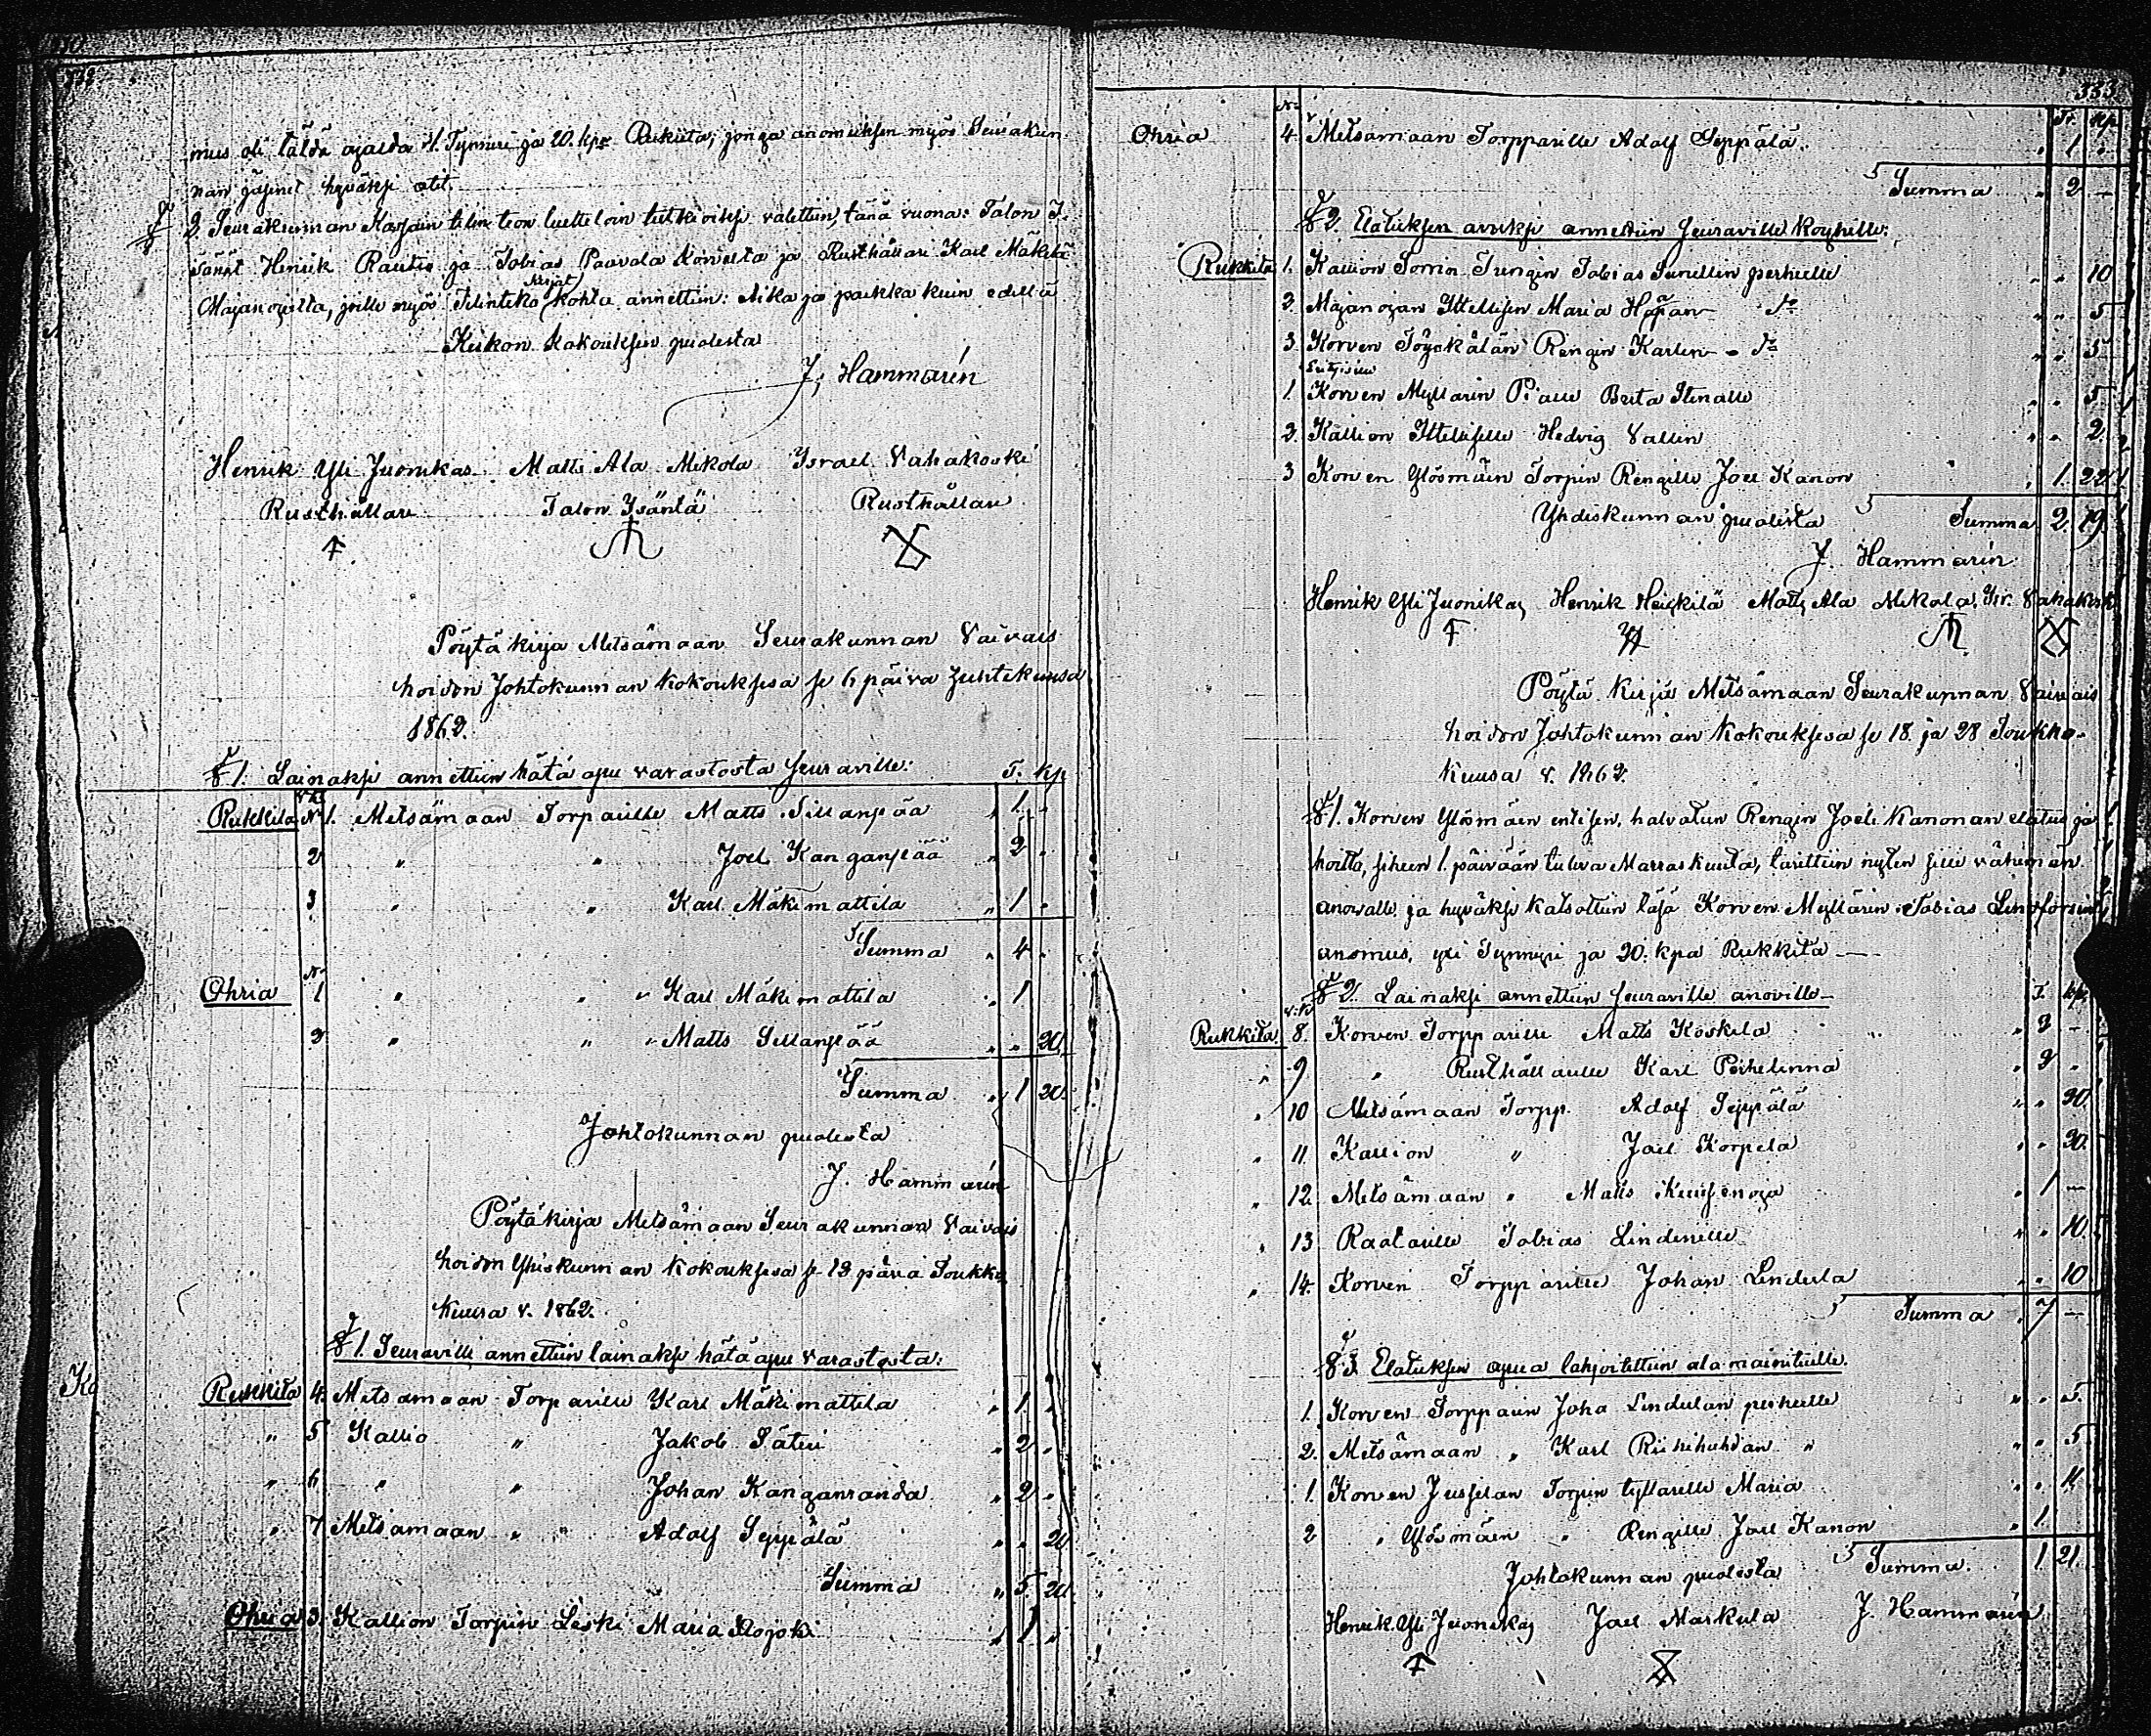 mus oli tältä ajalda 4. Tynniri ja 20. kpr Rukiita, jonga anomuksen myös Seurakun-
nan jäsenet hyväksi otit.
§ 2. Seurakunnan Kassain tilin teon luetteloin tutkioiksi valittiin, tänä vuona: Talon I-
sännt Henrik Rautio ja Tobias Paavola Korvesta ja Rusthållari Karl Mäkilä
Majanojalta, joille myös Tilinteko kirjat kohta annettiin: Aika ja paikka kuin edellä
Kirkon Kokouksen puolesta
J. Hammarén
Henrik Yli Juonikas Matts Ala Mikola Israel Vahakoski
Rusthållari Talon Isäntä Rusthållari
Pöytäkirja Metsämaan Seurakunnan Vaivais
hoidon Johtokunnan Kokouksesa se 6 päivä Huhtikuusa
1862.
§ 1. Lainaksi annettiin hätä apu varastosta seuraville: T. kp
Rukkita N 1. Metsämaan Torparille Matts Sillanpää „ 1 „
2 „ „ Joel Kanganpää „ 2 „
3 „ „ Karl Mäkimattila „ 1 „
Summa „ 4 „
Ohria 1 „ „ „ Karl Mäkimattila „ 1
2 „ „ „ Matts Sillanpää „ „ 20
Summa „ 1 20.
Johtokunnan puolesta
J. Hammarén
Pöytäkirja Metsämaan Seurakunnan Vaivais
hoidon Yhiskunnan Kokouksesa se 18 päivä Toukko
Kuusa v. 1862.
§ 1. Seuraville annettiin lainaksi hätä apu varastosta:
Rukkita 4. Metsamaan Torparille Karl Mäkimattila „ 1 „
„ 5 Kallio „ Jakob Säteri „ 2 „
„ 6 „ „ Johan Kanganranda „ 2 „
„ 7 Metsamaan „ „ Adolf Seppälä „ „ 20
Summa „ 5 20.
Ohria 3. Kallion Torpin Leski Maria Rojoki „ 1 „
333
Tr. kp
Ohria 4 Metsamaan Torpparille Adolf Seppälä. „ 1 „
Summa „ 2 —
§ 2. Elatuksen avuksi annettiin seuraville Köyhille:
Rukkita 1. Kallion Torrin Trengin Tobias Sunellin perheelle „ „ 10
2. Majanojan Ittellisen Maria Hajan do „ „ 5
3. Korven Töyckälän Rengin Karlin - do „ „ 5
Entisiin
1. Korven Myllärin Pialle Brita Stinalle „ „ 5
2. Kallion Ittelliselle Hedvig Vallin „ „ 2
3 Korven Ylösmäen Torpin Rengille Joel Kanon „ 1. 22
Yhdiskunnan puolesta Summa 2. 19.
J. Hammarén
Henrik Yli Juonikas Henrik Heickilä Matts Ala Mikola Isr. Vahakoski
Pöytä Kirja Metsämaan Seurakunnan Vaivais
hoidon Johtokunnan Kokouksesa se 18 ja 28 Toukko-
Kuusa v. 1862.
§ 1. Korven Ylösmäen entisen, halvatun Rengin Joeli Kanonan elatus ja
hoitto, siheen 1. päivään tulwa Marraskuuta, tarittiin nyten sille vähimän
anowalle ja hyväksi katsottiin täsä Korven Myllärin Tobias Lindforsin
anomus, yxi Tynnyri ja 20. kpa Rukkita —
§ 2. Lainaksi annettiin seuraville anoville — T. kp.
Rukkita 8. Korven Torpparille Matts Koskela „ 2 —
„ 9 „ Rusthållarille Karl Perhelinna „ 2 „
„ 10 Metsämaan Torpp. Adolf Seppälä „ „ 20
„ 11 Kallion „ Joel Korpela „ „ 20.
„ 12. Metsämaan „ Matts Kuusenoja „ 1 —
„ 13 Räätälille Tobias Lindenille „ „ 10
„ 14. Korven Torpparille Johan Lindula „ „ 10
Summa „ 7 —
§ 3. Elatuksen apua lahjoitettiin ala mainituille.
1. Korven Torpparin Joha Lindulan perheelle „ „ 5.
2. Metsämaan „ Karl Riihihuhdan „ „ „ 5
1. Korven Jussilan Torpin tyttärelle Maria „ „ 11.
2 „ Ylösmäen „ Rengille Joel Kanon „ 1.
Johtokunnan puolesta Summa. 1. 21.
Henrik Yli Juonikas Joel Markula J. Hammarén